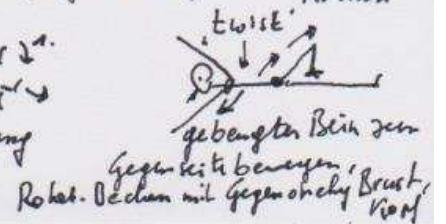 'twist'
gebeugtes Bein zur
Gegenseite bewegen,
Rotat. Becken mit Gegendrehg Brust,
Kopf